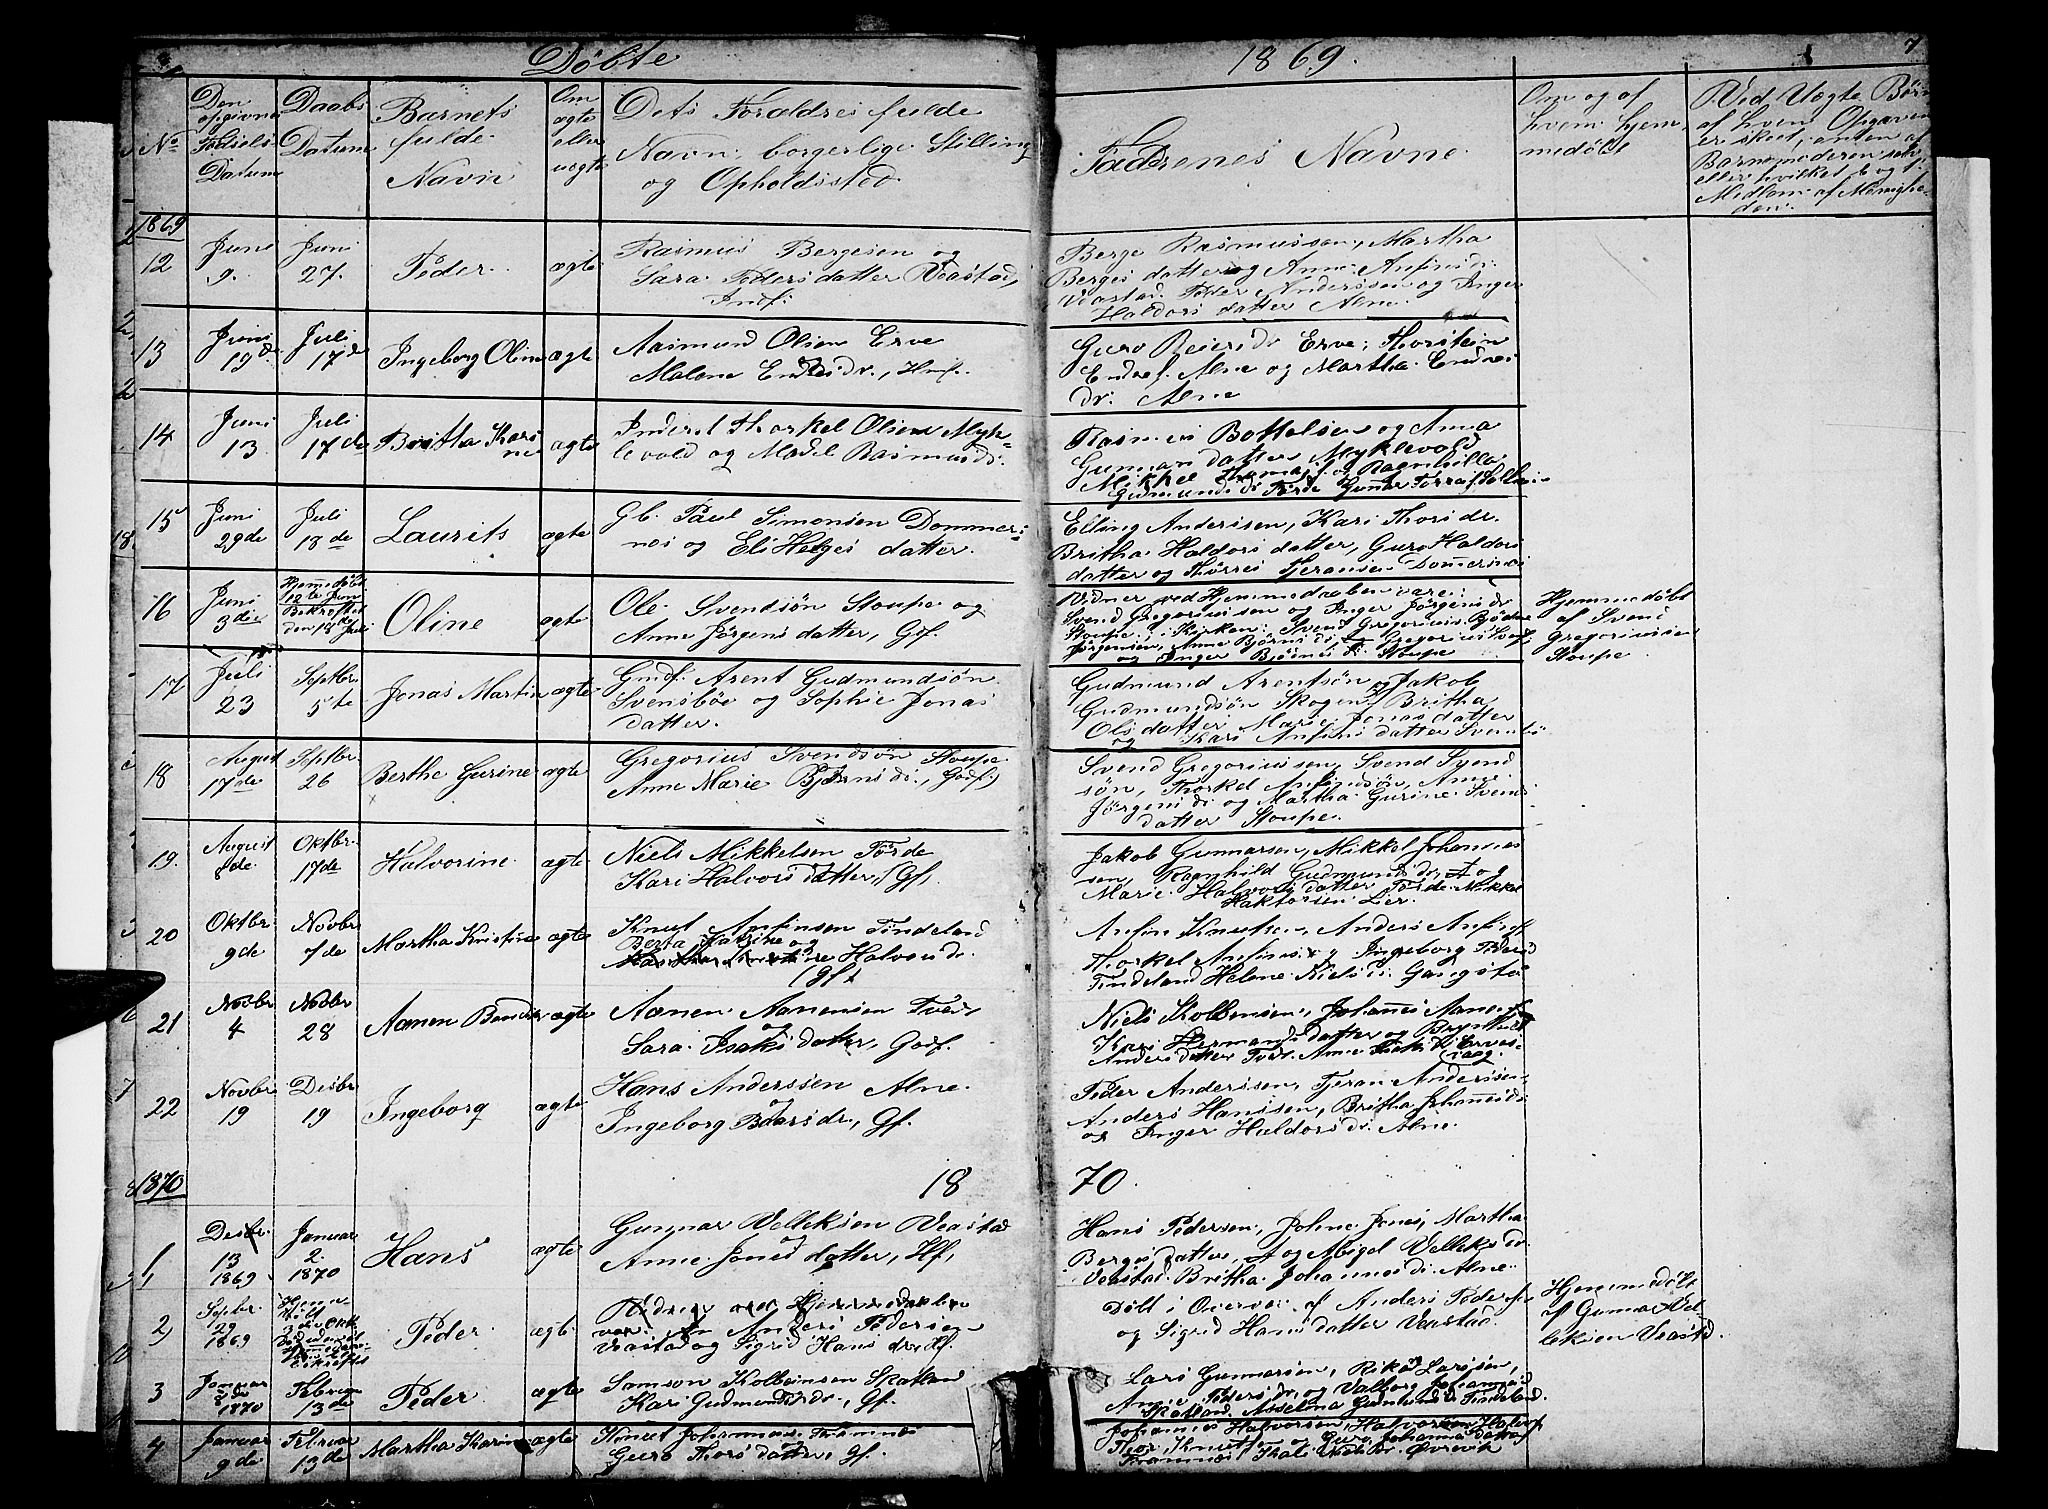 Døbte
1869.
7
No
Den opgivne Fødsels Datum
Daabs Datum
Barnets fulde Navn
Om ægte eller uægte
Dets Forældres fulde Navn, borgerlige Stilling og Opholdssted.
Faddrenes Navne.
Om og af hvem hjemmedøbt
Ved Uægte Børn af hvem Opgaven er skeet, enten af Barnemoderen selv eller hvilket
1869
12
Juni 9.
Juni 27.
Peder.
ægte
Rasmus Bergesen og
Sara Pedersdatter Veastad,
Indf.
Berge Rasmussen, Martha
Bergesdatter og Anne Anfinsdr.
Veastad. Peder Anderssen og Inger
Haldorsdatter Alne.
13
Juni 19de
Juli 17de
Ingeborg Oline
ægte
Rasmund Olsen Erve
Malene Endresdr., Hmf.
Guro Reiersdr Erve, Thorstein
Endres. Alne og Martha Endres
dr. Alne
14
Juni 13
Juli 17de
Britha Karine
ægte
Inderst Thorkel Olsen Myk=
levold og Madel Rasmundsdr.
Rasmus Bottolsen og Anna
Gunnarsdatter Myklevold
Mikkel Thomas. og Ragnhilla
Gudmundsdr Førde
15
Juni 29de
Juli 18de
Laurits
ægte
Gb. Paul Simonsen Dommers=
nes og Eli Helgesdatter.
Elling Anderssen, Kari Thorsdr.
Britha Haldorsdatter, Guro Haldors
datter og Thorres
16
Juni 3die
Hjemmedøbt 12te Juni Bekræftet den 18de Juli
Oline
ægte
Ole Svendsøn Stoupe og
Anne Jørgensdatter, Gf.
Vidner ved Hjemmedaaben vare:
Svend Gregoriussen og Inger Jørgensdr
Stoupe; i Kirken: Svend Gregorius.
Jørgensen, Anne Bjørnsdr,
og Inger Bjørnsdr. Stoupe
Hjemmedøbt
af Svend
Gregoriussen
Stoupe.
17
Juli 23
Septbr 5te
Jonas Martin
ægte
Gmdf. Arent Gudmundsøn
Svensbøe og Sophie Jonas
datter.
Gudmund Arentsøn og Jakob
Gudmundsøn Skogen, Britha
Olsdatter Marie Jonasdatter
og Kari Anfinsdatter Svensbø
18
August 17de
Septbr. 26
Berthe Gurine
ægte
Gregorius Svendsøn Stoupe.
Anne Marie Bjørnsdr., Gdf.
Svend Gregoriussen, Svend Svend
søn, Thorkel Anfindsøn, Anne
Jørgensdr og Martha Gurine Svends
datter Stoupe.
19.
August 8de.
Oktbr. 17de
Halvorine.
ægte
Niels Mikkelsen Førde
Kari Halvorsdatter, Gf.
Jakob Gunnarsen, Mikkel Johannes
sen, Ragnhild Gudmundsdr, og
Marie Halvorsdatter Førde. Mikkel
Haktorsen Lier.
20
Oktbr. 9de
Novbr. 7de
Martha Kristine
ægte
Knut Anfinsen Tindeland
Berta Katrine og
Halvorsdr.
Gf.
Anfin Knutsen, Anders Anfins.
Thorkel Anfins. og Ingeborg Peders
Tindeland Helene Nielsdr. Gangstø
21
Novbr 4
Novbr 28
Aanen Bendik
ægte
Aanen Aanensen Tveit,
og
Sara Isaksdatter, Godf.
Niels Kolbensen, Johannes Aanens.
Kari Hermansdatter og Brynhild
Andersdatter Tveit. Anne Isaksdr Ervesvaag.
22
Novbr 19
Desbr 19
Ingeborg
ægte
Hans Anderssen Alne.
og
Ingeborg Baarsdr., Gf.
Peder Andersen, Tjeran Andersen
Anders Hanssen, Britha Johannesdr
og Inger Haldorsdr. Alne.
1870
1870.
1
Desbr. 13 1869
Januar 2. 1870
Hans
ægte
Gunnar Velleksen Veastad
Anne Jonesdatter, Hf.
Hans Pedersen, Johne Jones, Martha
Bergesdatter, og Abigel Velleksdr.
Veastad. Britha Johannesdr. Alne.
2,
Sepbr. 29 1869
Hjemmedøbt 3die Okt.
Peder.
ægte
Vidner ved Hjemmedaaben
var: Anders Pedersen
Veastad og Sigrid Hansdr, Hf.
Døbt i Overvær af Anders Pedersen
og Sigrid Hansdatter Veastad.
Hjemmedøbt
af Gunnar Vel=
leksen Veastad.
3
Januar 1870
Februar 13de
Peder
ægte
Samson Kolbeinsen Skatland
Kari Gudmundsdr., Gf.
Lars Gunnarsen, Rikar Larssen,
Anne Pedersdr. og Valborg Johannesdr
Skatland. Asselina Gudmundsdr Tindeland.
4
Januar 9de
Februar 13de
Martha Karine
ægte
Knut Johannes. Framnes
Guro Thorsdatter, Gf.
Johannes Halvorsen, Halvor
Thor Knuts. og Guro Johannesdatter
Framnes